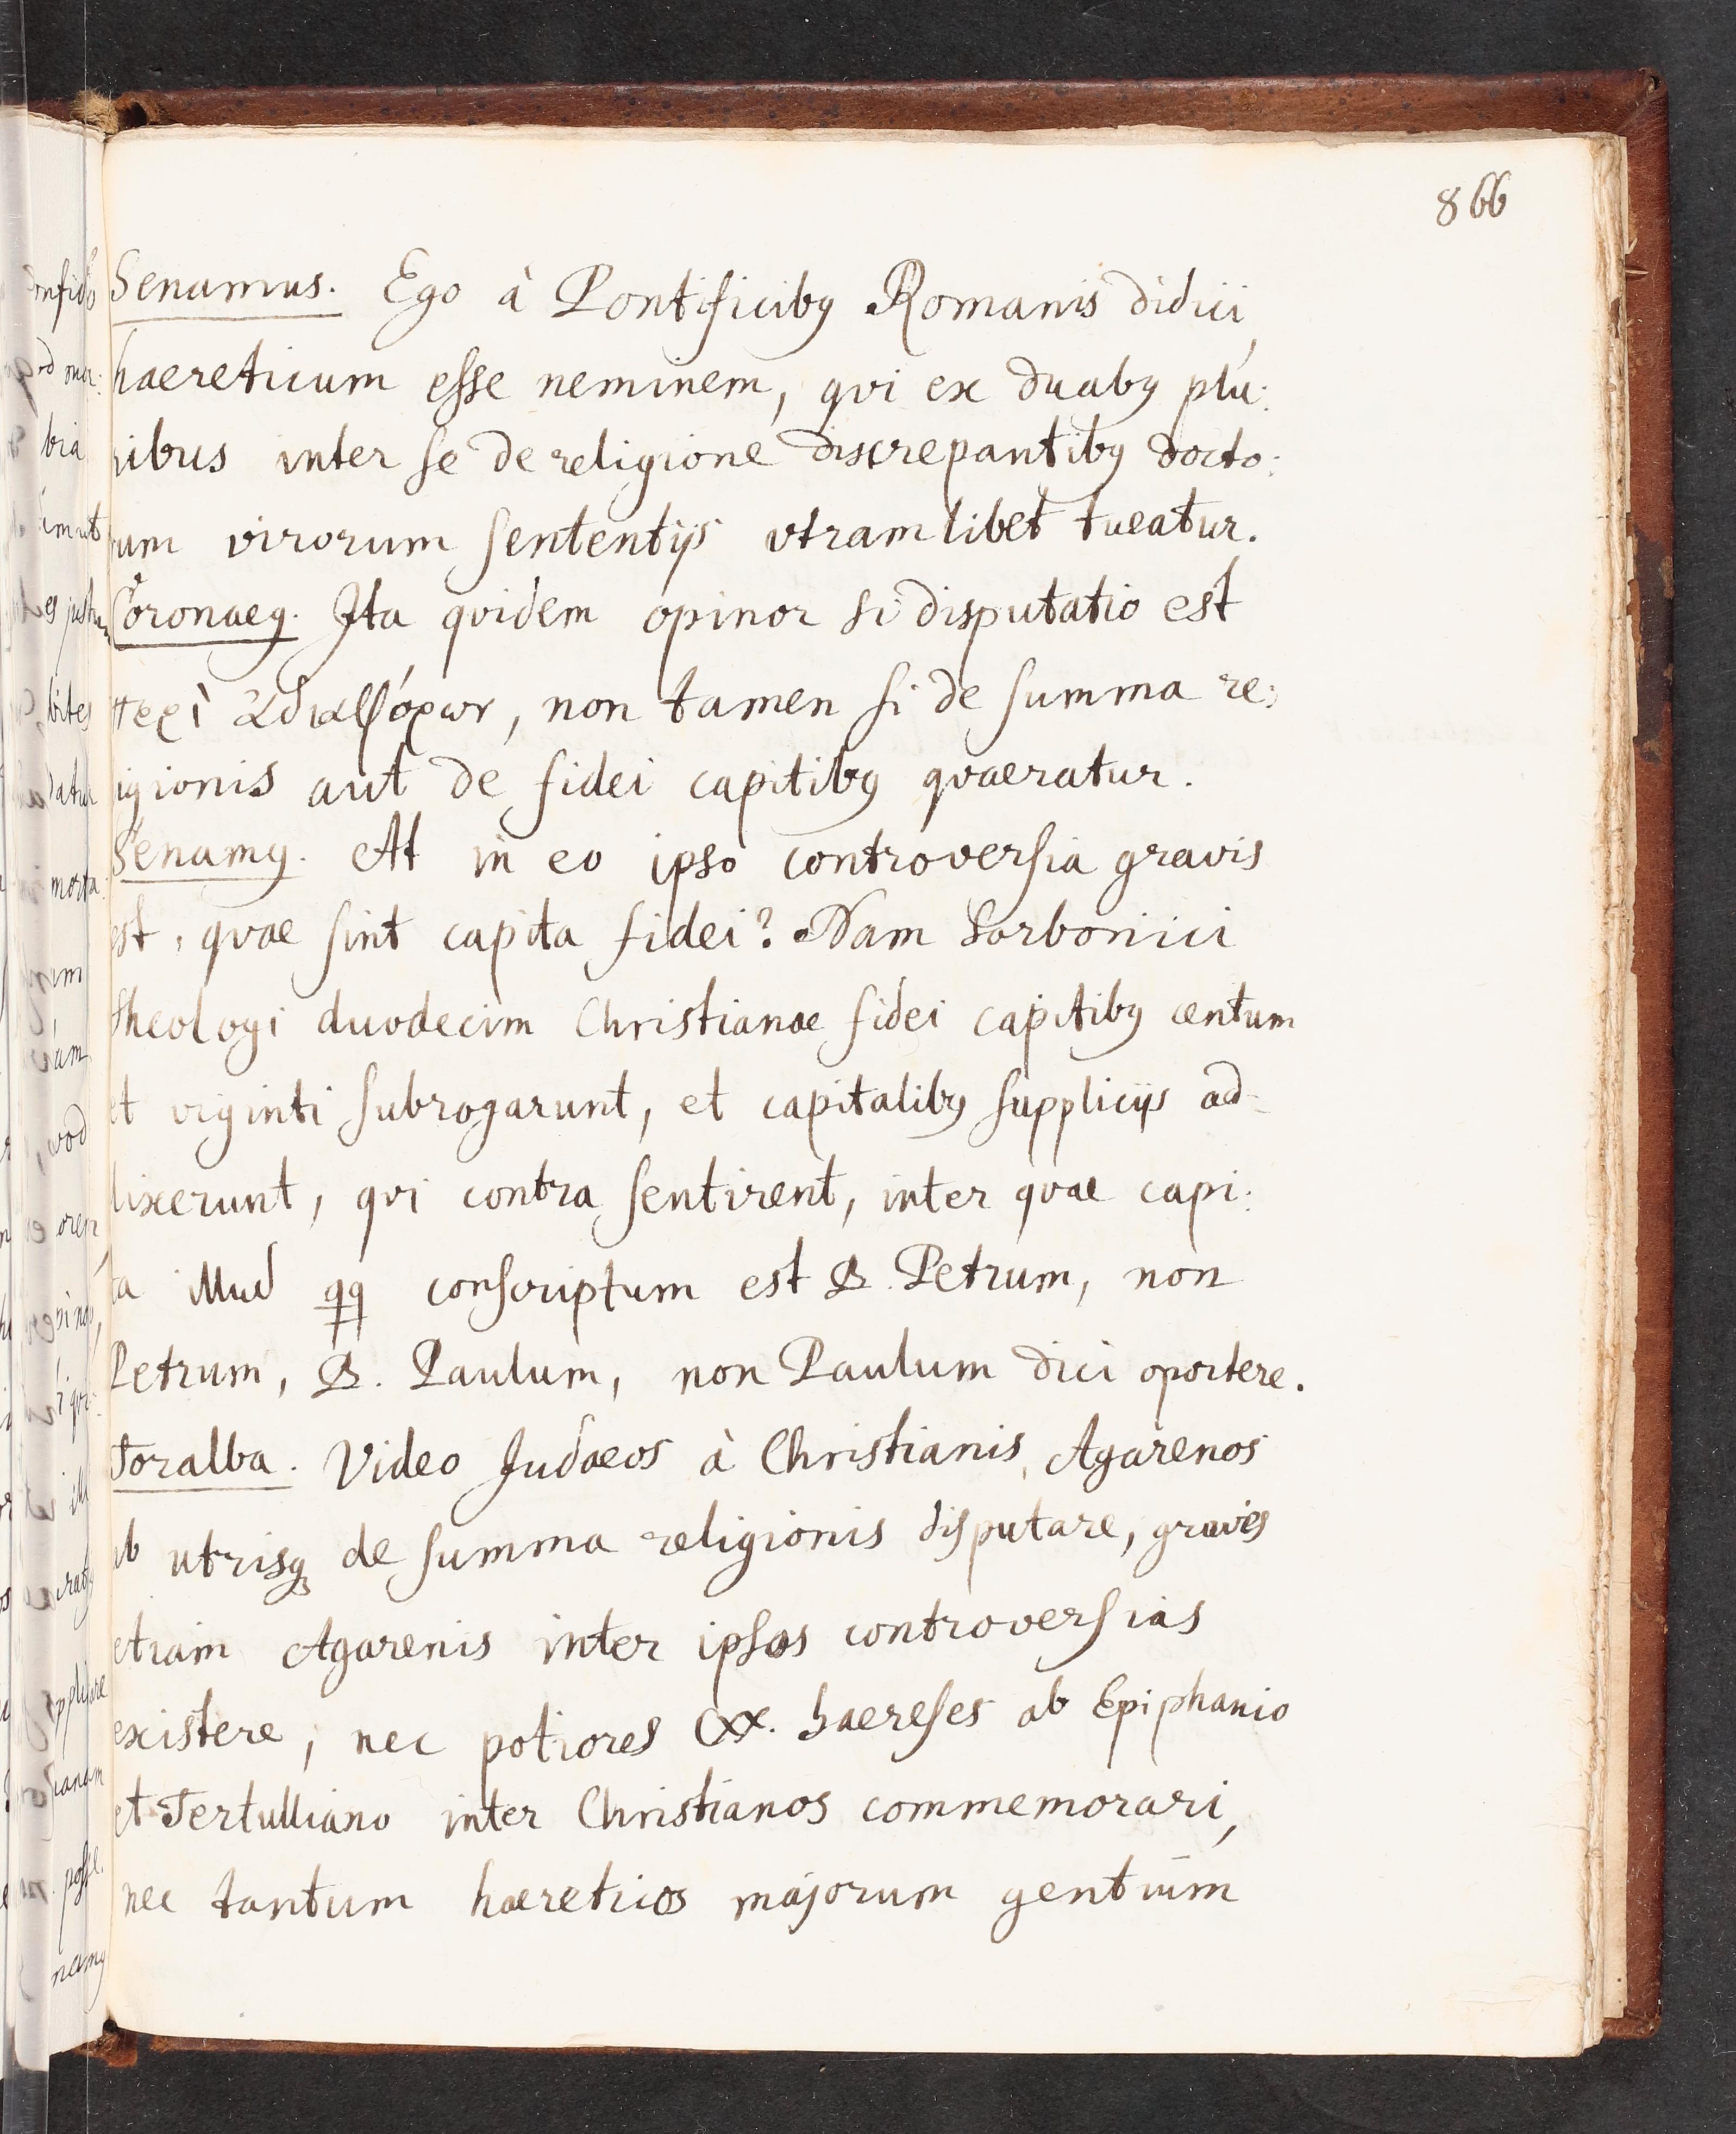 866
Senamus. Ego à Pontificibꝰ Romanis didici,
haereticum esse neminem, qvi ex duabꝰ plu:
ribus inter se de religione discrepantibꝰ docto:
rum virorum sententijs vtramlibet tueatur.
Coronaeꝰ. Ita qvidem opinor si disputatio est
περὶ ἀδιαφόρων, non tamen si de summa re:
ligionis aut de fidei capitibꝰ qvaeratur.
Senamꝰ. At in eo ipso controversia gravis
est, qvae sint capita fidei? Nam Sorbonici
Theologi duodecim Christianae fidei capitibꝰ centum
et viginti subrogarunt, et capitalibꝰ supplicijs ad-
dixerunt, qvi contra sentirent, inter qvae capi:
ta illud qq conscriptum est B. Petrum, non
Petrum, B. Paulum, non Paulum dici oportere.
Toralba. Video Judaeos à Christianis, Agarenos
ab utrisq de summa religionis disputare, graves
etiam Agarenis inter ipsos controversias
existere, nec potiores CXX. haereses ab Epiphanio
et Tertulliano inter Christianos commemorari,
nec tantum haereticos majorum gentium